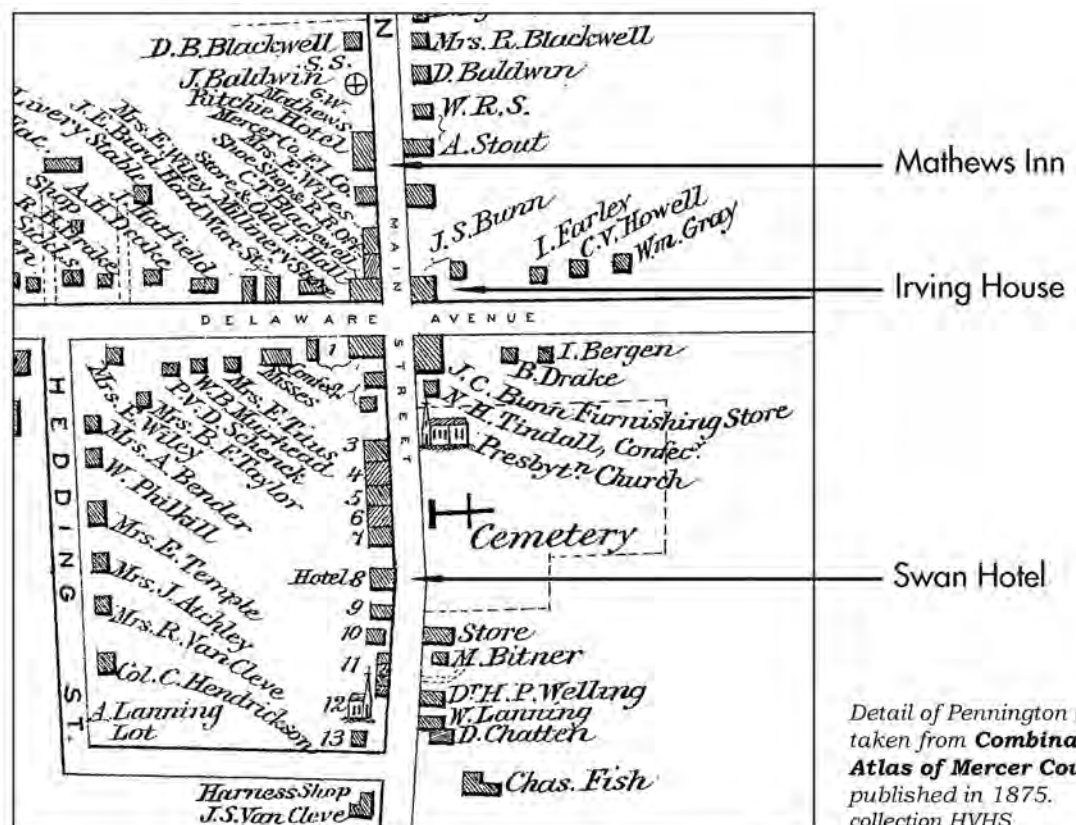 N
D.B. Blackwell
S.S.
J. Baldwin
G.W.
Mathews
Ritchie Hotel
Mercer Co. F.I. Co.
Mrs. E. Wiles
Shoe Shop & R.R. Off.
C.T. Blackwell
Store & Odd F. Hall
Mrs. E. Wiley, Millinery Store
J.E. Burd, Hard Ware St.
Livery Stable
J. Hatfield
A.H. Drake
Shop
R.H. Drake
Sickls
Mrs. R. Blackwell
D. Baldwin
W.R.S.
A. Stout
J.S. Bunn
I. Farley
C.V. Howell
Wm. Gray
MAIN
STREET
DELAWARE AVENUE
HEDDING ST.
1
Confec.
Misses
Mrs. E. Titus
W.B. Muirheid
P.V.D. Schenck
Mrs. B.F. Taylor
Mrs. E. Wiley
Mrs. A. Bender
W. Philkill
Mrs. E. Temple
Mrs. J. Atchley
Mrs. R. Van Cleve
Col. C. Hendrickson
A. Lanning
Lot
3
4
5
6
7
Hotel 8
9
10
11
12
13
I. Bergen
B. Drake
J.C. Bunn Furnishing Store
N.H. Tindall, Confec.
Presbytn Church
Cemetery
Store
M. Bitner
Dr. H.P. Welling
W. Lanning
D. Chatten
Chas. Fish
Harness Shop
J.S. Van Cleve
Mathews Inn
Irving House
Swan Hotel
Detail of Pennington
taken from Combina
Atlas of Mercer Cou
published in 1875.
collection HVHS